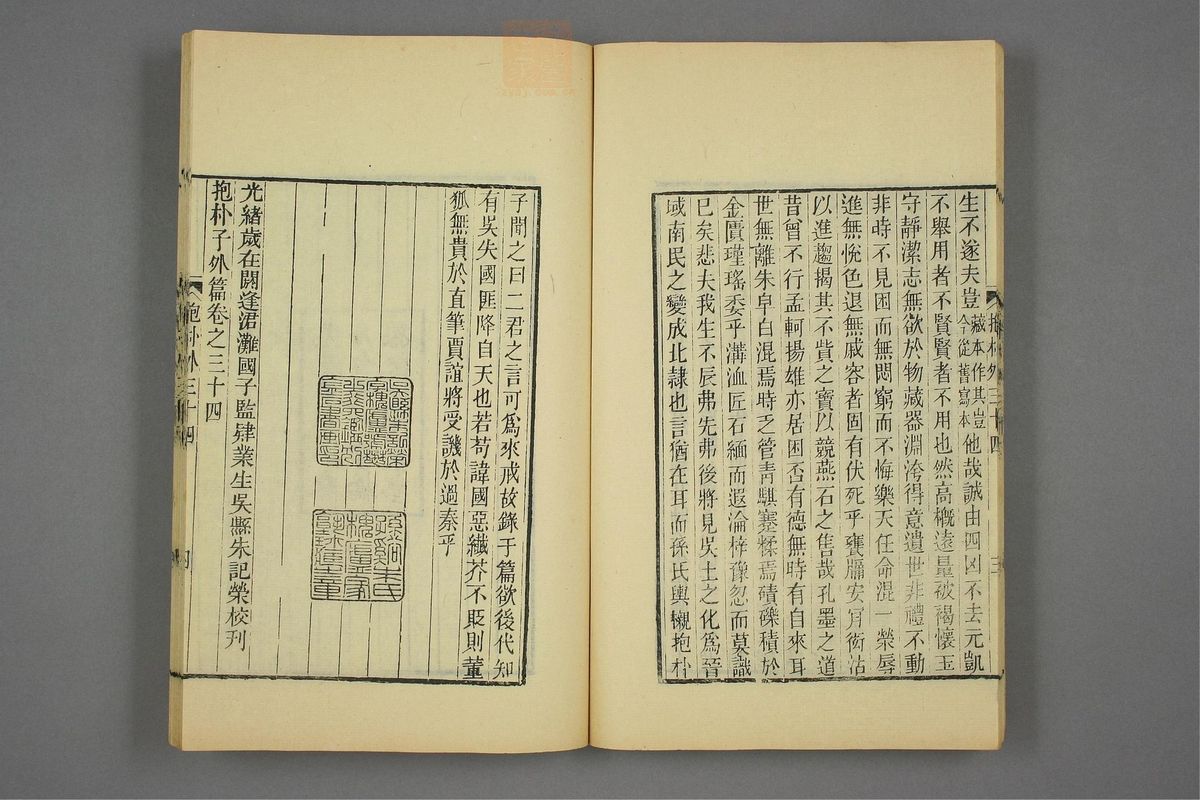 生不遂夫豈藏本作其豈今從舊寫本他哉誠由四凶不去元凱
不舉用者不賢賢者不用也然高概遠量被褐懷玉
守靜潔志無欲於物藏器淵洿得意遺世非禮不動
非時不見困而無悶窮而不悔樂天任命混一榮辱
進無悅色退無戚容者固有伏死乎甕牖安肯衒沽
以進趨揭其不貲之寶以競燕石之售哉孔墨之道
昔曾不行孟軻揚雄亦居困否有德無時有自來耳
世無離朱皁白混焉時乏管青騏蹇糅焉磧礫積於
金匱瑾瑤委乎溝洫匠石緬而遐淪梓豫忽而莫識
已矣悲夫我生不辰弗先弗後將見吳土之化為晉
域南民之變成北隸也言猶在耳而孫氏輿櫬抱朴
抱朴外三十四
三
子聞之曰二君之言可為來戒故錄于篇欲後代知
有吳失國匪降自天也若苟諱國惡纖芥不貶則董
狐無貴於直筆賈誼將受譏於過秦乎
光緒歲在閼逢涒灘國子監肄業生吳縣朱記榮校刊
抱朴子外篇卷之三十四
抱朴外三十四
四
孫谿朱氏
槐廬家